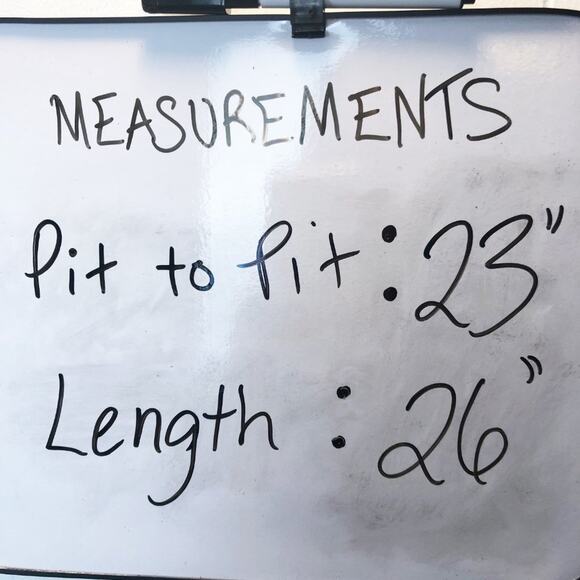 MEASUREMENTS
Pit to Pit : 23"
Length : 26"